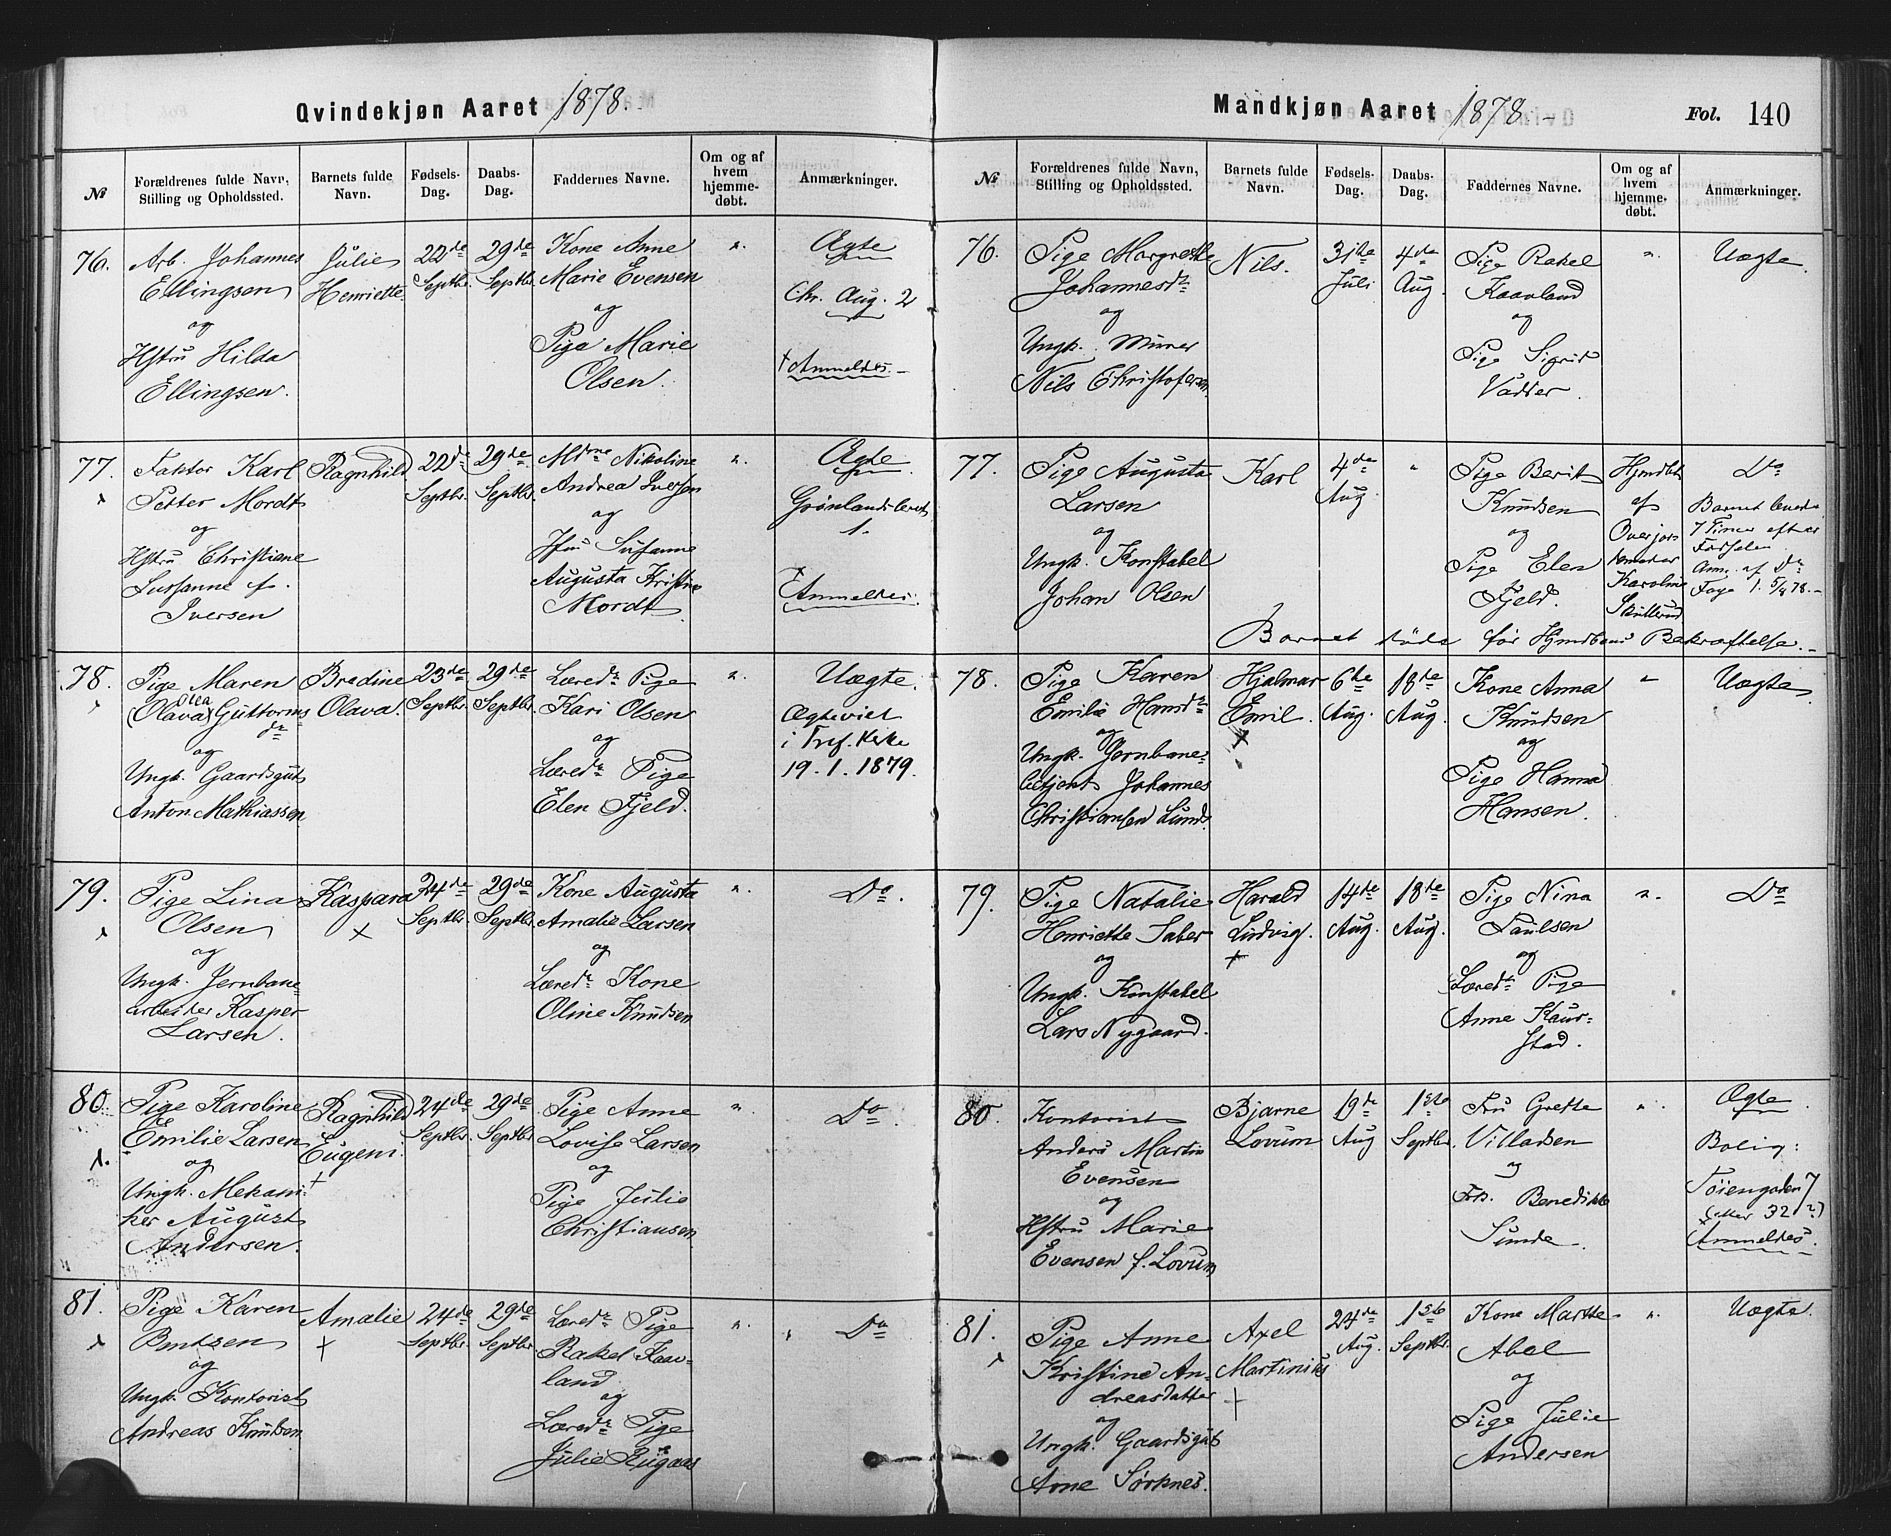 Qvindekjøn Aaret 1878.
№
Forældrenes fulde Navn, Stilling og Opholdssted.
Barnets fulde Navn.
Fødsels-Dag.
Daabs-Dag.
Faddernes Navne.
Om og af hvem hjemme-døbt.
Anmærkninger.
76.
Arb. Johannes
Ellingsen
og
Hstru Hilda
Ellingsen.
Julie
Henriette
22de
Septbr.
29de
Septbr.
Kone Anne
Marie Evensen
og
Pige Marie
Olsen.
"
Ægte
Chr. Aug. 2
+ Anmeldes.
77.
Faktor Karl
Petter Mordt
og
Hstru Christiane
Sussanne f.
Iversen
Ragnhild
22de
Septbr.
29de
Septbr.
Mdme Nikoline
Andrea Iversen
og
Jfru Susanne
Augusta Kristine
Mordt
"
Ægte
Grønlandsleret
1.
Anmeldes.
78.
Pige Maren
(Olava) Olea Guttorms
dr
og
Ungk. Gaardsgut
Anton Mathiassen
Bradine
Olava.
23de
Septbr.
29de
Septbr.
Læredr Pige
Kari Olsen
og
Læredr Pige
Elen Fjeld.
"
Uægte.
Ægteviet
i Tref. Kirke
19.1.1879.
79.
Pige Lina
Olsen
og
Ungk. Jernbane-
arbeider Kasper
Larsen.
Kaspara
+
24de
Septbr.
29de
Septbr.
Kone Augusta
Amalie Larsen
og
Læredr Kone
Oline Knudsen
"
Do.
80.
Pige Karoline
Emilie Larsen
og
Ungk. Mekani-
ker August
Andersen.
Ragnhild
Eugeni.
+
24de
Septbr.
29de
Septbr.
Pige Anne
Lovise Larsen
og
Pige Julie
Christiansen
"
Do.
81.
Pige Karen
Bentsen
og
Ungk. Kontorist
Andreas Knudsen
Amalie
+
24de
Septbr.
29de
Septbr.
Læredr Pige
Rakel Kaav-
land
og
Læredr Pige
Julie Rügaas
"
Do
Mandkjøn Aaret 1878.
Fol. 140
№
Forældrenes fulde Navn, Stilling og Opholdssted.
Barnets fulde Navn.
Fødsels-Dag.
Daabs-Dag.
Faddernes Navne.
Om og af hvem hjemme-døbt.
Anmærkninger.
76.
Pige Margrethe
Johannesdr
og
Ungk. Murer
Nils Christofersen
Nils.
31te
Juli
4de
Aug.
Pige Rakel
Kaavland
og
Pige Sigrid
Vadder.
"
Uægte.
77.
Pige Augusta
Larsen
og
Ungk. Konstabel
Johan Olsen
Karl
4de
Aug.
"
Pige Berit
Knudsen
og
Pige Elen
Fjeld.
Hjmdbt
af
Overjor-
demoder
Karoline
Skullerud
Do
Barnet levede
7 Timer efter
Fødselen
Anm. af Dr
Faye 1. 5/8 78.
Barnet døde før Hjmdbens Bekræftelse.
78.
Pige Karen
Emilie Hansdr
og
Ungk. Jernbane-
betjent Johannes
Christiansen Lund.
Hjalmar
Emil.
+
6te
Aug.
18de
Aug.
Kone Anna
Knudsen
og
Pige Hanna
Hansen.
"
Uægte
79.
Pige Natalie
Henriette Faber
og
Ungk. Konstabel
Lars Nygaard.
Harald
Ludvig.
+
14de
Aug.
18de
Aug.
Pige Nina
Paulsen
og
Læredr Pige
Anne Kaur-
stad.
"
Do
80.
Kontorist
Anders Martin
Evensen
og
Hstru Marie
Evensen f. Lovum
Bjarne
Lovum
19de
Aug
1ste
Septbr.
Fru Grethe
Villadsen
og
Frk. Benedikte
Sunde.
"
Ægte.
Bolig:
Töiengaden 7
(eller 32?)
Anmeldes.
81.
Pige Anne
Kristine An-
dreasdatter
og
Ungk. Gaardsgut
Arne Sørknes.
Axel
Martinius
+
24de
Aug.
1ste
Septbr.
Kone Marthe
Abel
og
Pige Julie
Andersen
"
Uægte.